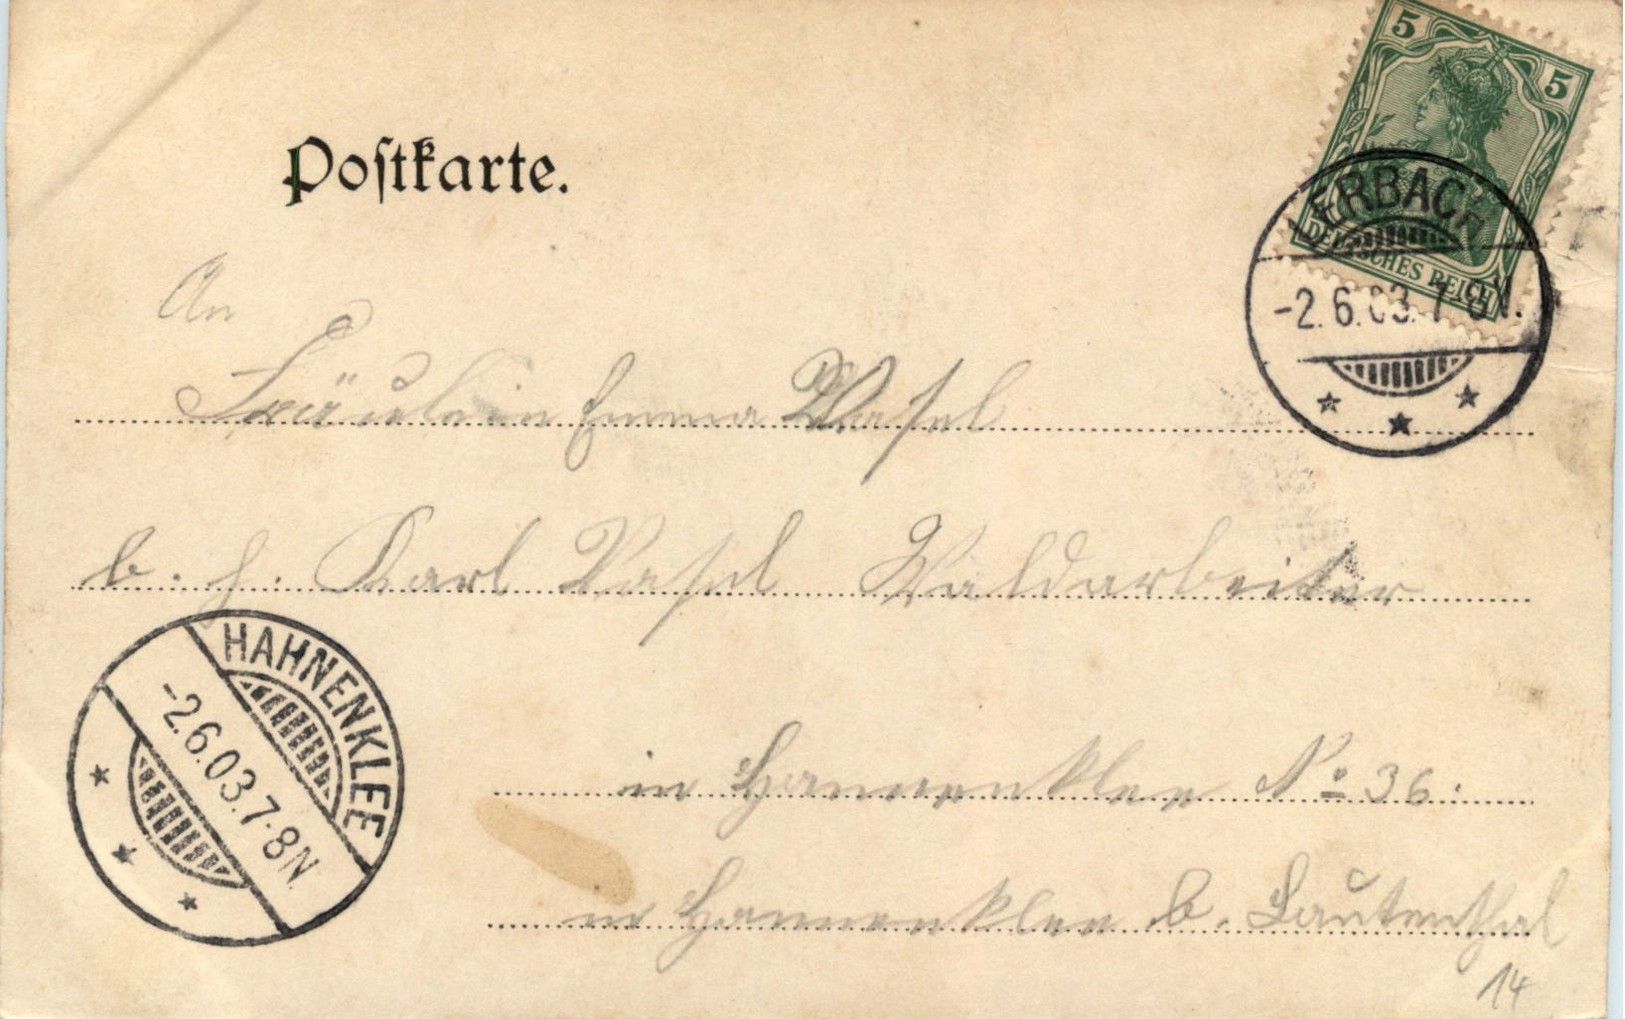 5 5
DEUTSCHES REICH
LERBACH
-2.6.03. 7-8N.
Postkarte.
An
Fräulein Emma Wasel
b. H. Karl Wasel Waldarbeiter
in Hannenklee No 36.
in Hannenklee b. Lautenthal
HAHNENKLEE
-2.6.03.7-8N.
14